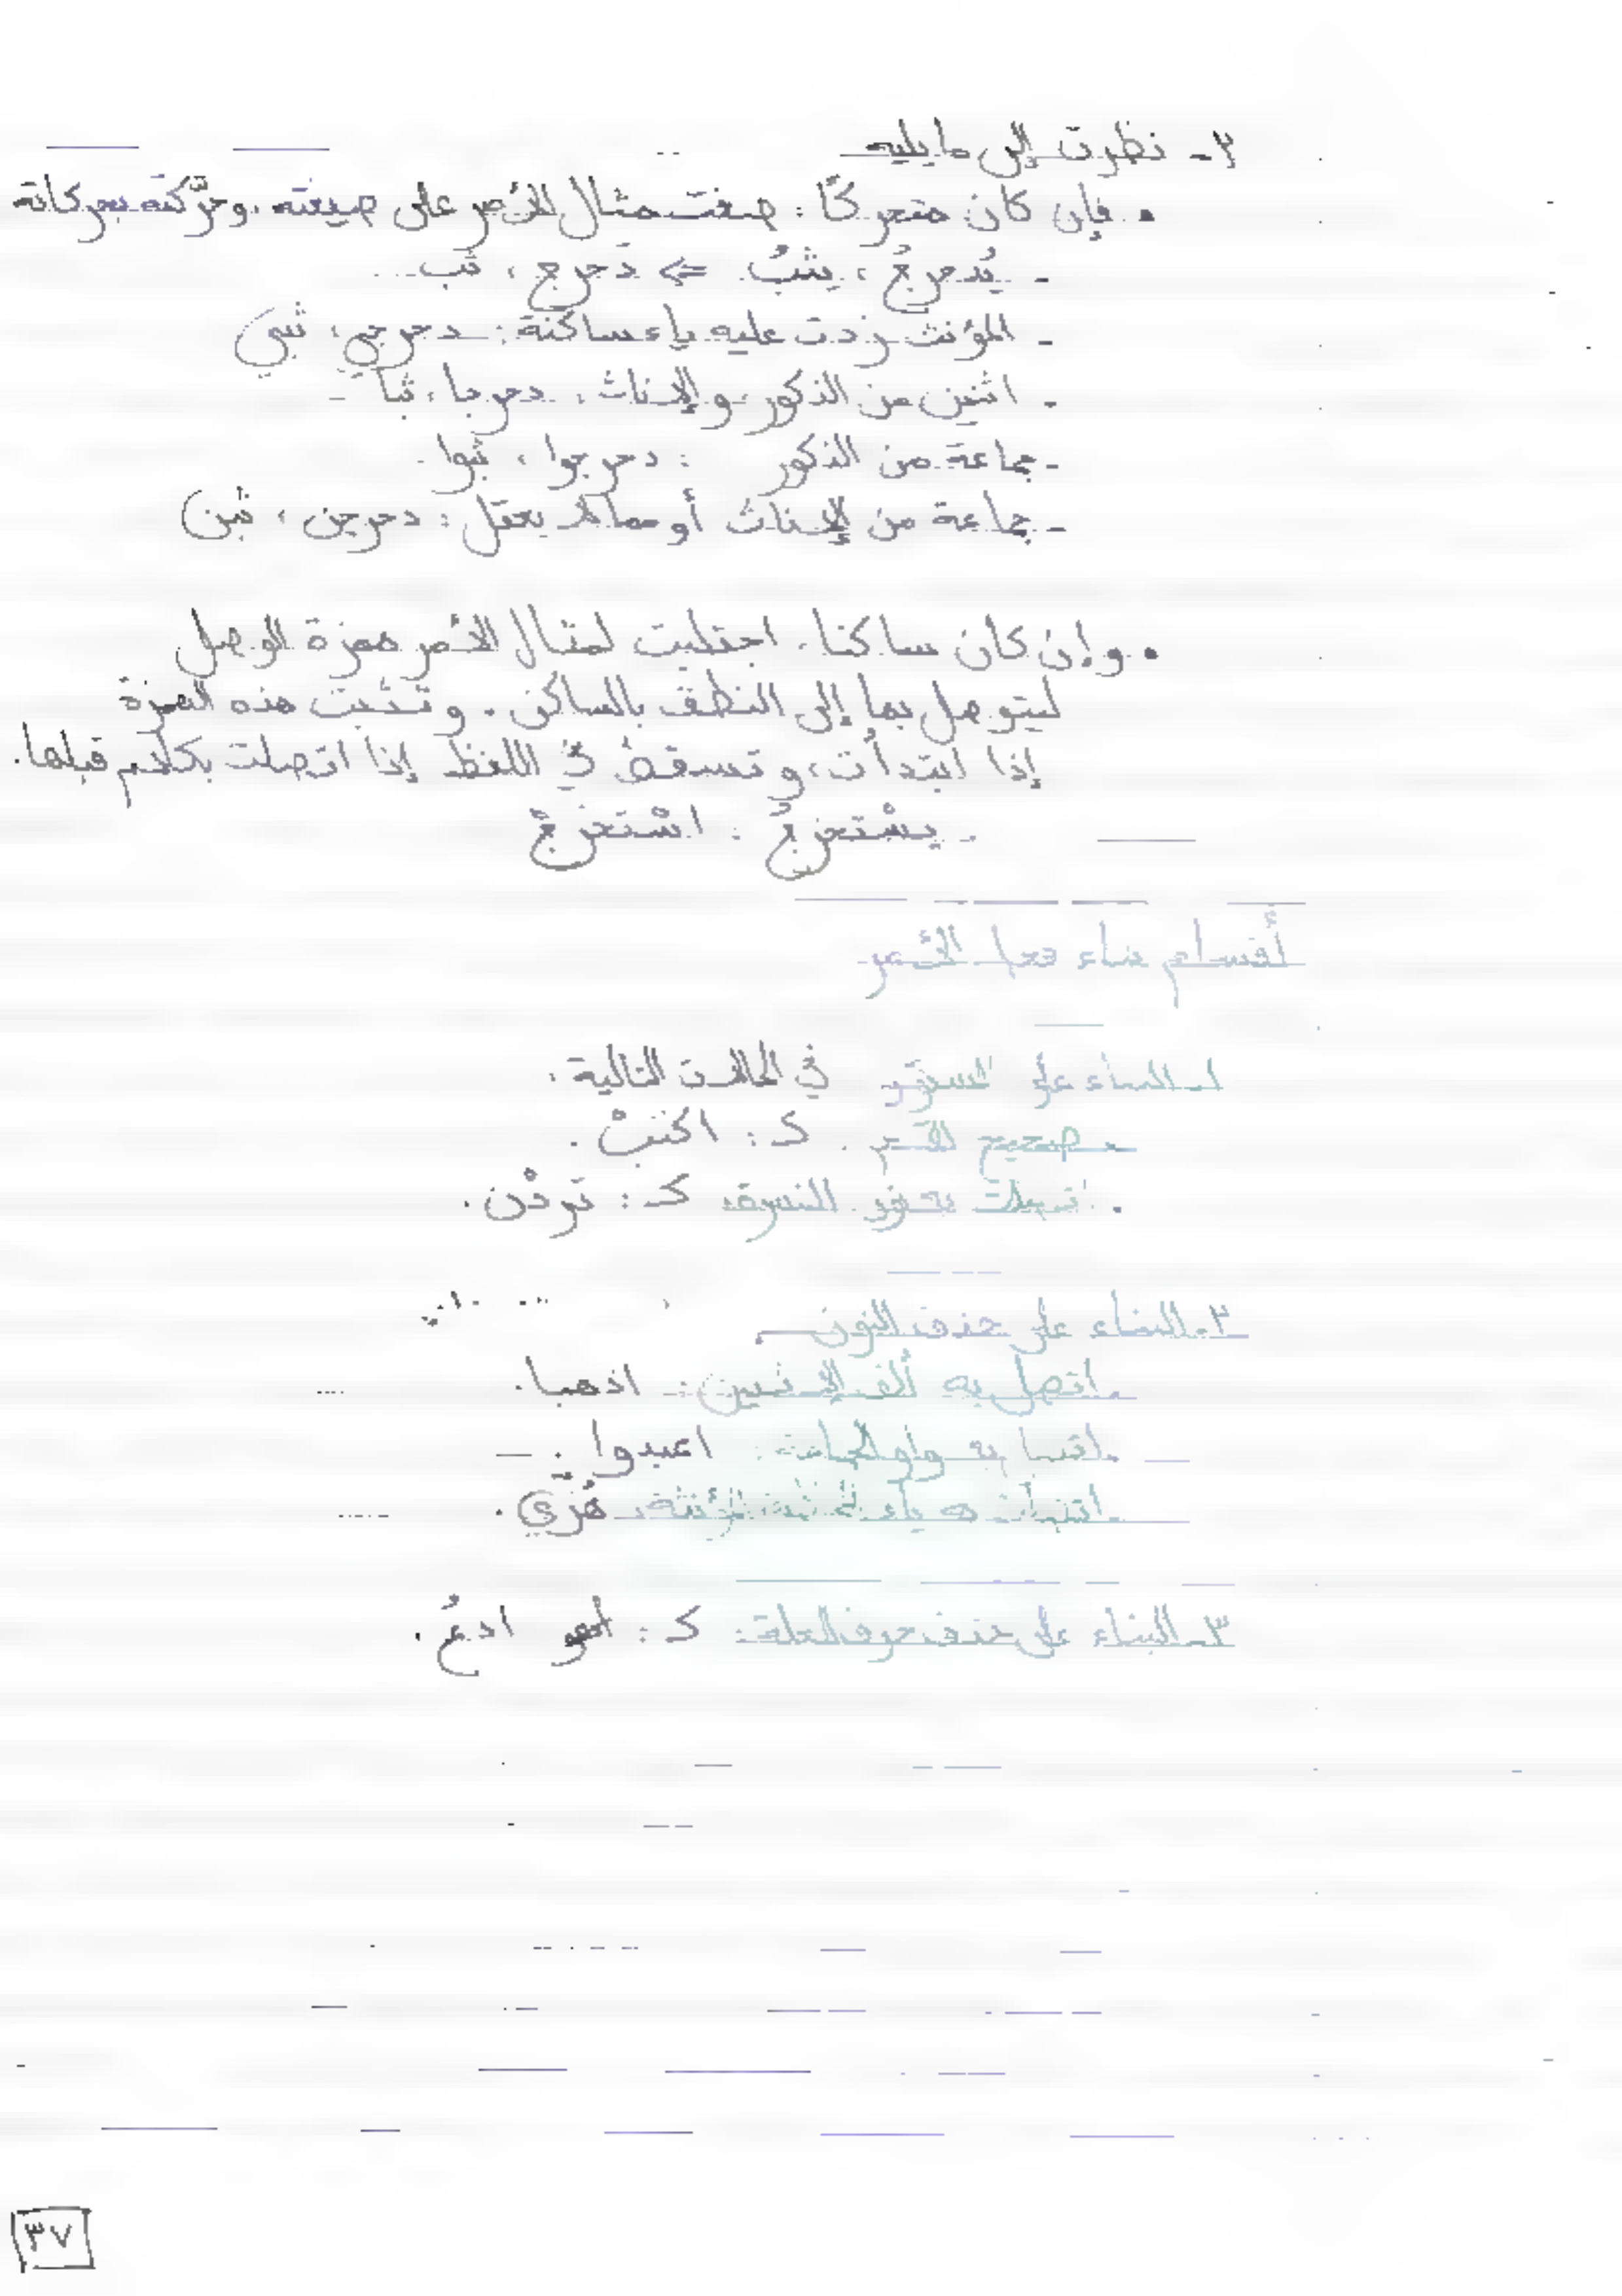 ٣- نظرت إلى ما يليه
• فإن كان متحركًا : صغت مثال الأمر على صيغته، وحرَّكته بحركاته
- يُدحرجُ ، يثبُ ⇐ دَحرج ، ثب ...
- المؤنث زدت عليه ياء ساكنة : دحرجي ، ثبي
- اثنين من الذكور والإناث : دحرجا ، ثبا
- جماعة من الذكور : دحرجوا ، ثبوا .
- جماعة من الإناث أو مما لا يعقل : دحرجن ، ثبن
• وإن كان ساكنا ، اجتلبت لمثال الأمر همزة الوصل
ليتوصل بها إلى النطق بالساكن . وتثبت هذه الهمزة
إذا ابتدأت ، وتسقط في اللفظ إذا اتصلت بكلام قبلها .
- يسْتخرجُ : اسْتخرجْ
أقسام بناء فعل الأمر
١- البناء على السكون في الحالات التالية :
• صحيح الآخر . كـ : اكتبْ .
• اتصلت به نون النسوة كـ : تردْن .
٢- البناء على حذف النون
. اتصل به ألف الإثنين : اذهبا .
. اتصل به واو الجماعة : اعبدوا .
ياء المؤنثة هُزي .
٣- البناء على حذف حرف العلة : كـ : ادعُ .
٣٧